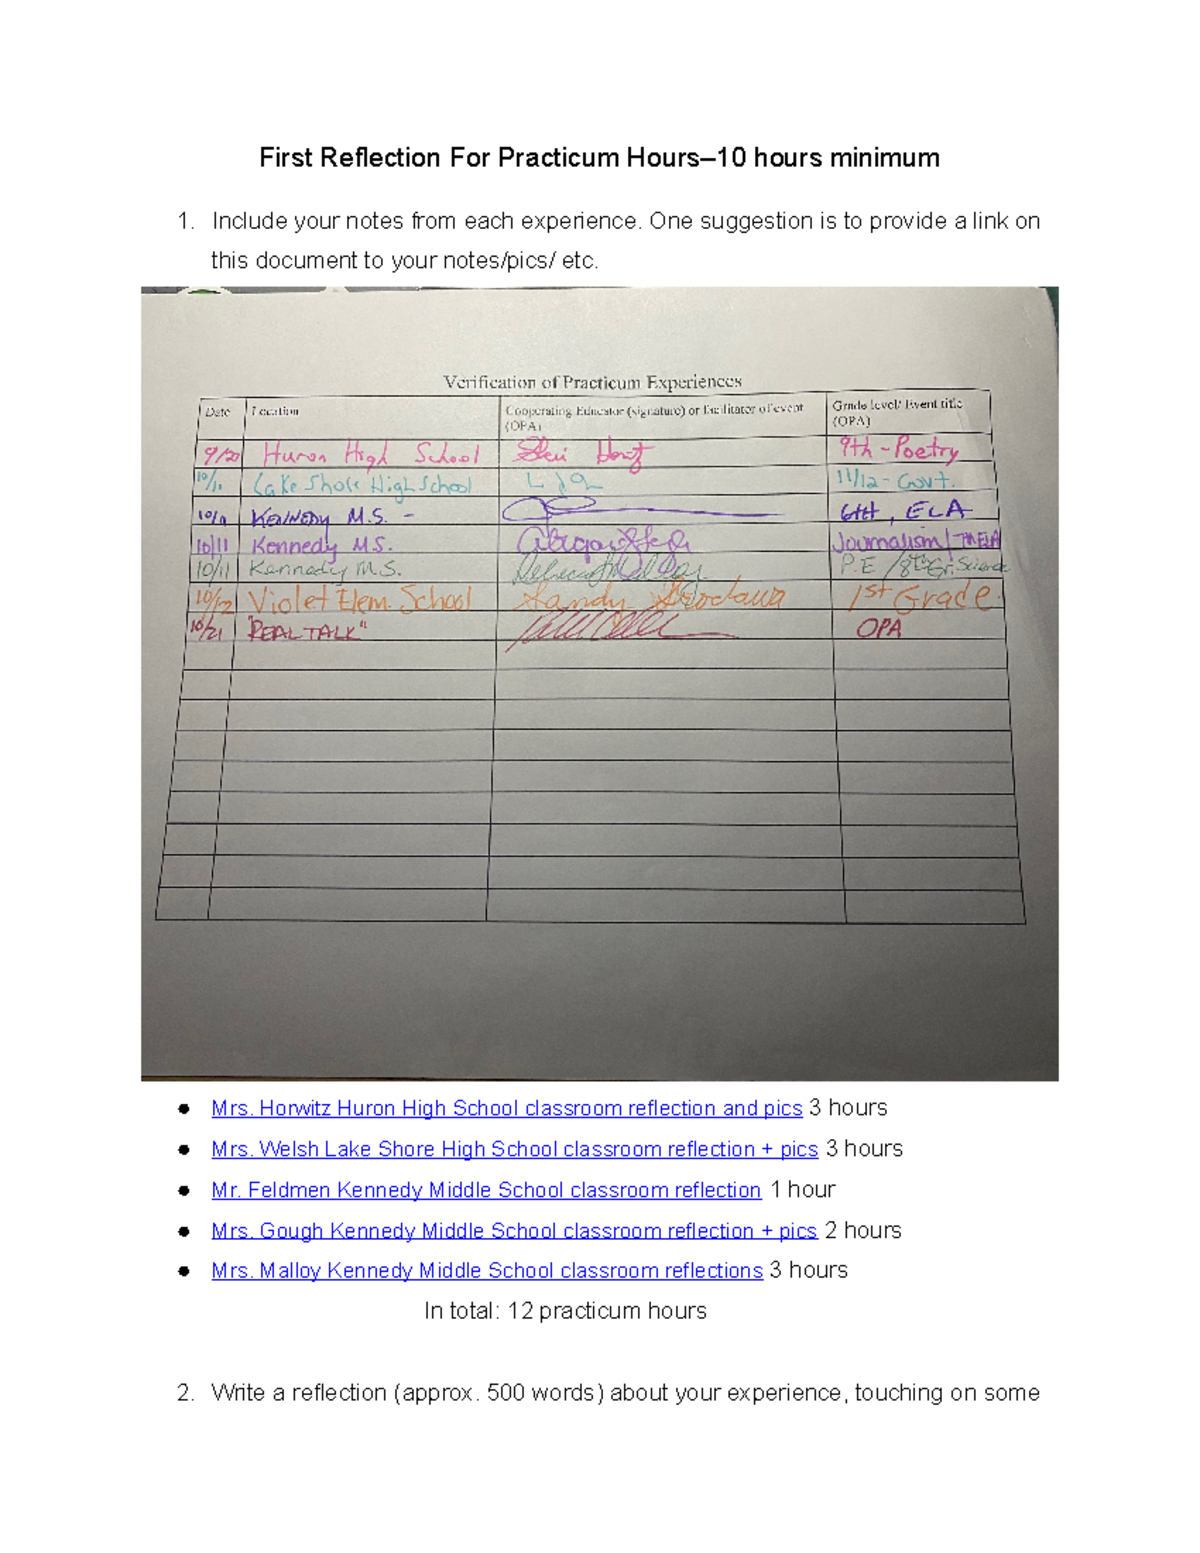 First Reflection For Practicum Hours–10 hours minimum
1. Include your notes from each experience. One suggestion is to provide a link on
this document to your notes/pics/ etc.
Verification of Practicum Experiences
Date Location Cooperating Educator (signature) or facilitator of event (OPA) Grade level/ Event title (OPA)
9/20 Huron High School 9th - Poetry
10/11 Lake Shore High School 11/12 - Govt.
10/9 KENNEDY M.S. - 6th, ELA
10/11 Kennedy M.S. Journalism/
10/11 Kennedy M.S. P.E /8th Gr. Science
10/12 Violet Elem. School Sandy 1st Grade
10/21 "REAL TALK" OPA
● Mrs. Horwitz Huron High School classroom reflection and pics 3 hours
● Mrs. Welsh Lake Shore High School classroom reflection + pics 3 hours
● Mr. Feldmen Kennedy Middle School classroom reflection 1 hour
● Mrs. Gough Kennedy Middle School classroom reflection + pics 2 hours
● Mrs. Malloy Kennedy Middle School classroom reflections 3 hours
In total: 12 practicum hours
2. Write a reflection (approx. 500 words) about your experience, touching on some